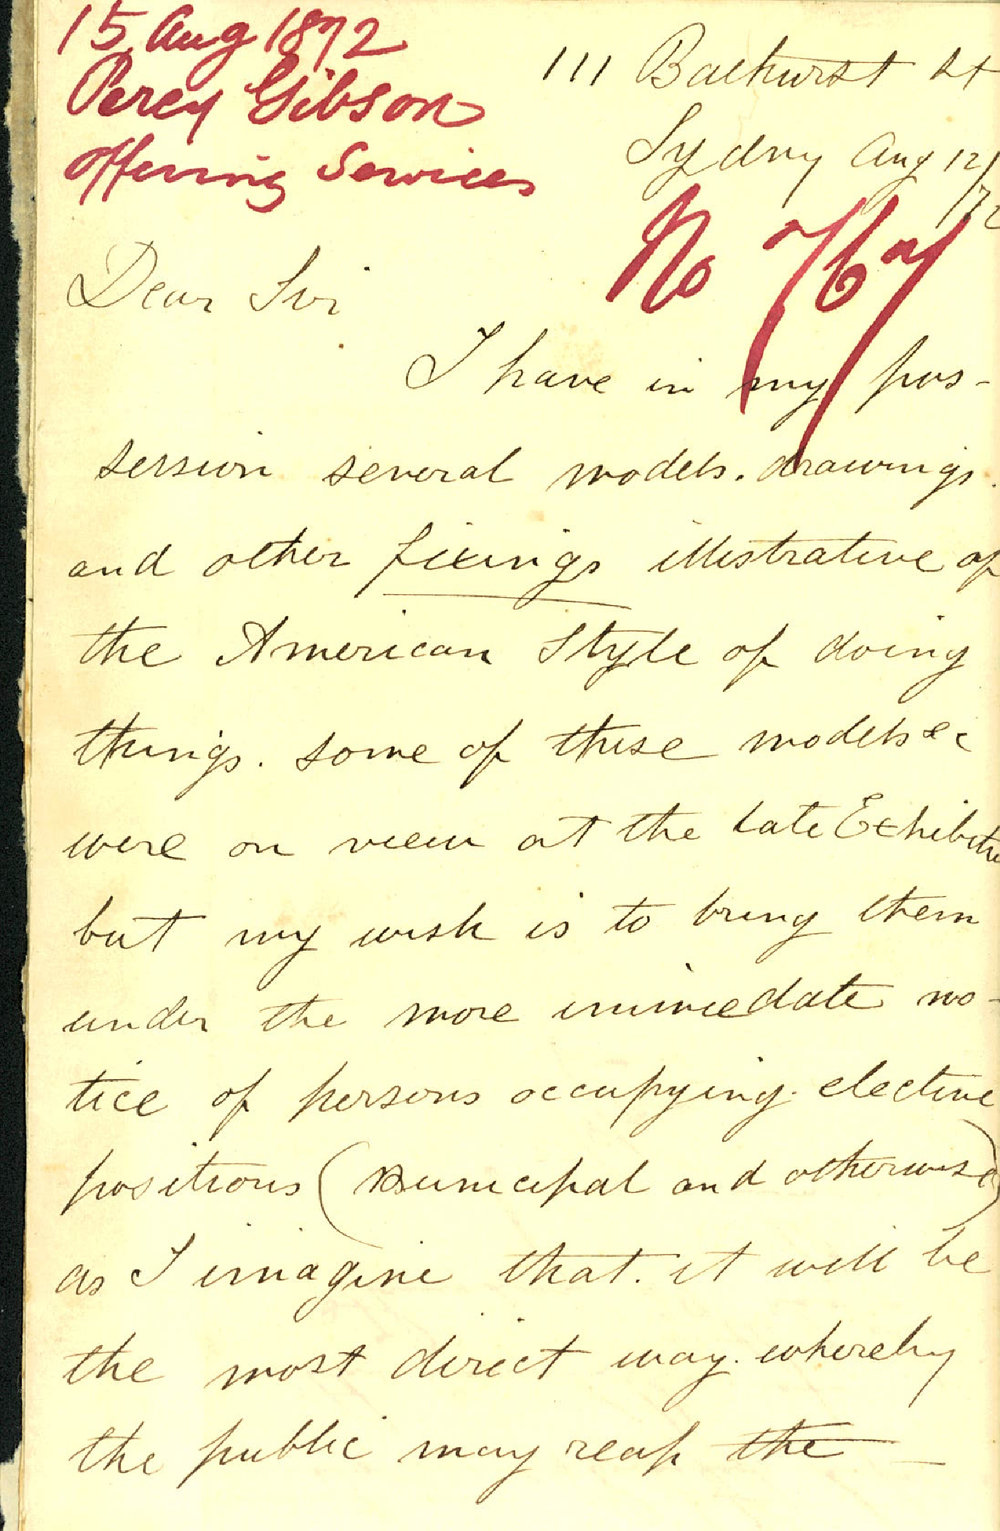 15 Aug 1872
Percy Gibson
Offering Services
111 Bathurst St
Sydney Aug 12/
/72
No
Dear Sir
I have in my pos-
session several models. drawings.
and other fixings illustrative of
the American Style of doing
things. some of these models &c
were on view at the late Exhibition
but my wish is to bring them
under the more immediate no-
tice of persons occupying elective
positions (Municipal and otherwise)
as I imagine that. it will be
the most direct way. whereby
the public may reap the